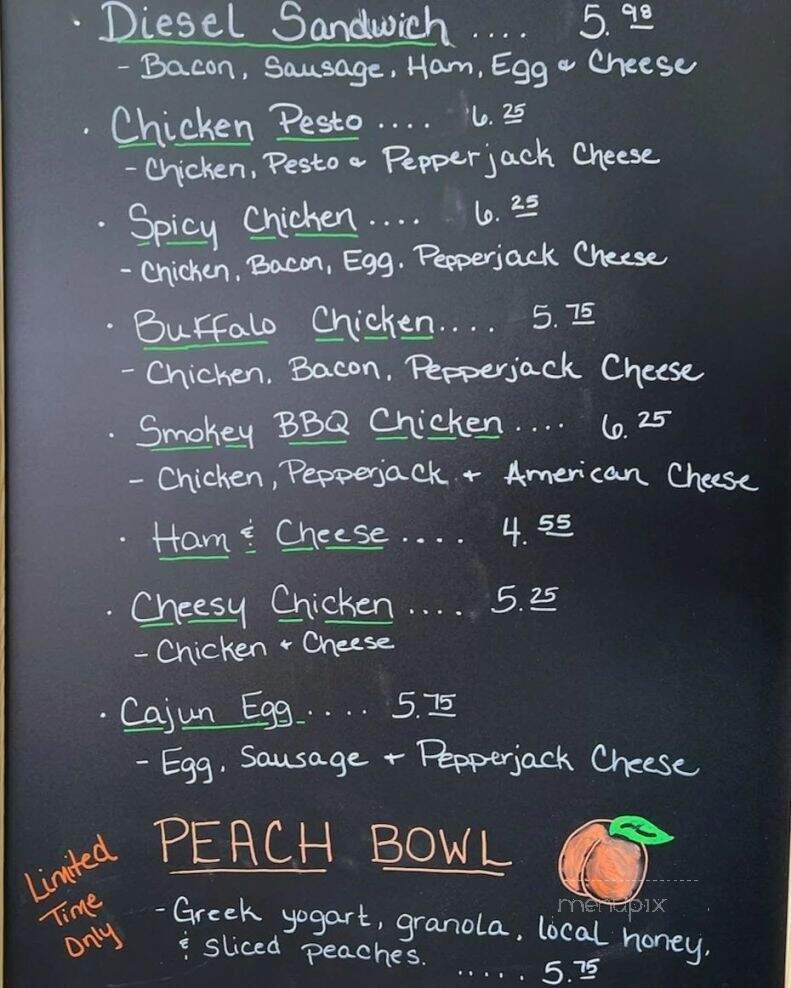 · Diesel Sandwich .... 5.98
- Bacon, Sausage, Ham, Egg & Cheese
· Chicken Pesto .... 6.25
- Chicken, Pesto & Pepperjack Cheese
· Spicy Chicken .... 6.25
- Chicken, Bacon, Egg, Pepperjack Cheese
· Buffalo Chicken.... 5.75
- Chicken, Bacon, Pepperjack Cheese
· Smokey BBQ Chicken .... 6.25
- Chicken, Pepperjack + American Cheese
· Ham & Cheese .... 4.55
· Cheesy Chicken .... 5.25
- Chicken + Cheese
· Cajun Egg .... 5.75
- Egg, Sausage + Pepperjack Cheese
PEACH BOWL
Limited
Time
Only
menupix
- Greek yogurt, granola, local honey,
& sliced peaches.
..... 5.75